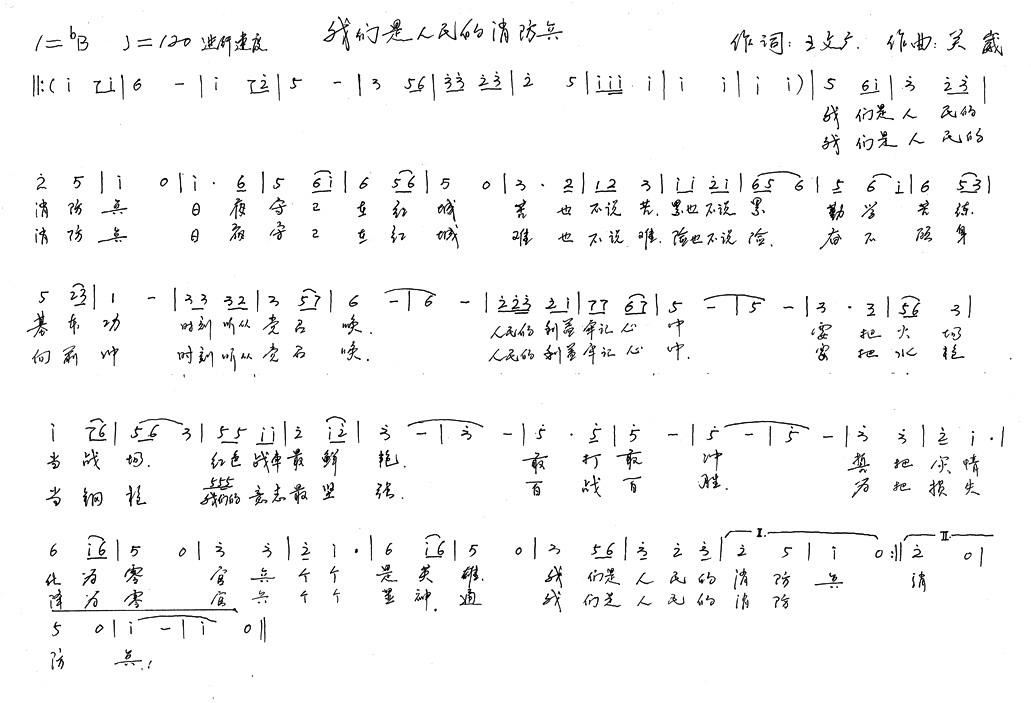 我们是人民的消防兵
1=♭B ♩=120 进行速度 作词:王文广. 作曲:吴
‖:( i 7 i | 6 - | i 7 2 | 5 - | 3 5 6 | 3 3 2 3 | 2 5 | i i i i | i i | i i ) | 5 6 i | 3 2 3 |
我们是人民的
我们是人民的
2 5 | i 0 | i · 6 | 5 6 i | 6 5 6 | 5 0 | 3 · 2 | 1 2 3 | i i 2 i | 6 5 6 | 5 6 i | 6 5 3 |
消防兵 日夜守卫在红城 苦也不说苦.累也不说累 勤学苦练
消防兵 日夜守卫在红城 难也不说难.险也不说险. 奋不顾身
5 2 3 | 1 - | 3 3 3 2 | 3 5 7 | 6 - | 6 - | 2 2 3 2 i | 7 7 6 7 | 5 - | 5 - | 3 · 3 | 5 6 3 |
基本功 时刻听从党召唤. 人民的利益牢记心中 要把火场
向前冲 时刻听从党召唤. 人民的利益牢记心中. 要把水枪
i 7 6 | 5 6 3 | 5 5 i i | 2 i 2 | 3 - | 3 - | 5 · 5 | 5 - | 5 - | 5 - | 3 3 | 2 i · |
当战场. 红色战车最鲜艳. 敢打敢冲 誓把灾情
5 5 5
当钢枪 我们的意志最坚强. 百战百胜. 为把损失
6 i 6 | 5 0 | 3 3 | 2 i · | 6 i 6 | 5 0 | 3 5 6 | 3 2 3 | I. 2 5 | i 0 :‖ II. 2 0 |
化为零 官兵个个是英雄. 我们是人民的消防兵 消
降为零 官兵个个显神通 我们是人民的消防
5 0 | i - | i 0 ‖
防兵!